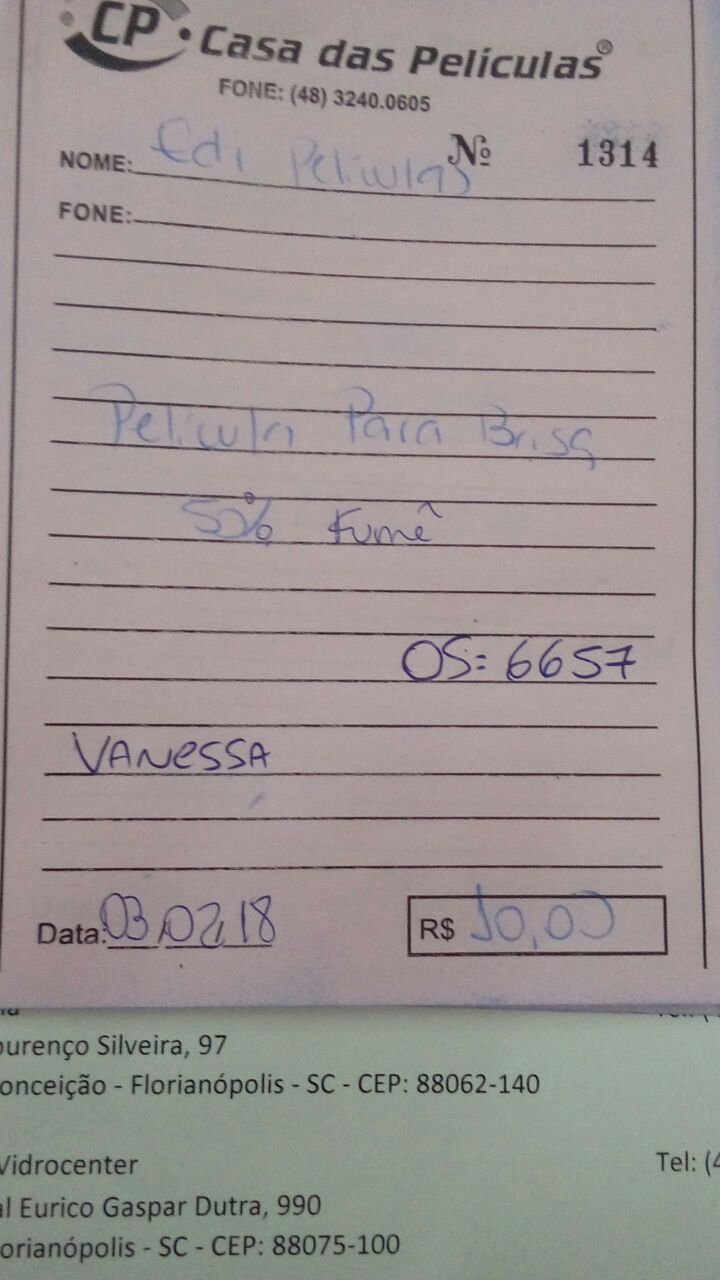 CP • Casa das Películas®
FONE: (48) 3240.0605
NOME: Edi Peliculas Nº 1314
FONE:
Pelicula Para Brisa
50% Fumê
OS= 6657
VANESSA
Data: 03/02/18 R$ 50,00
ourenço Silveira, 97
onceição - Florianópolis - SC - CEP: 88062-140
Vidrocenter Tel: (4
al Eurico Gaspar Dutra, 990
orianópolis - SC - CEP: 88075-100